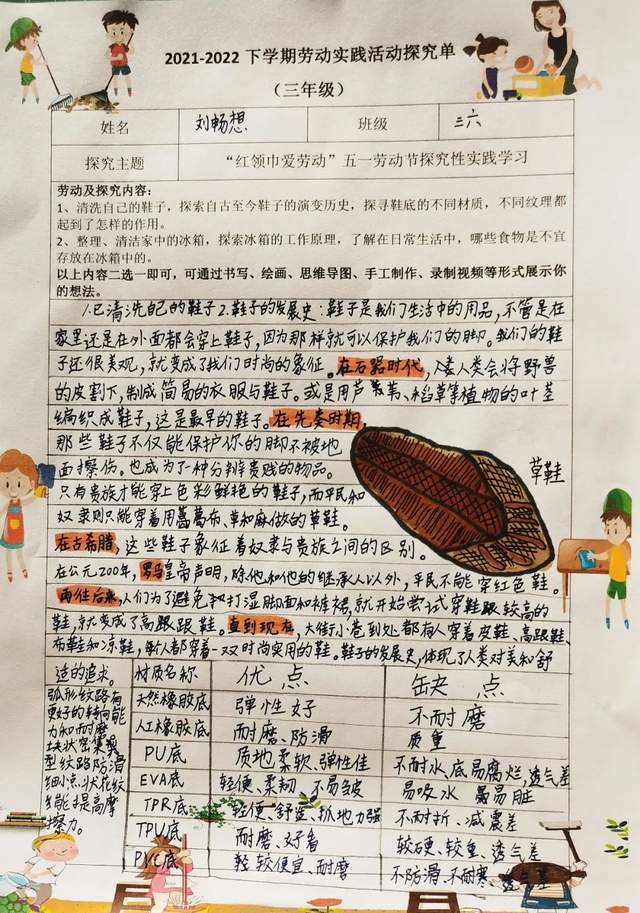 2021-2022 下学期劳动实践活动探究单
（三年级）
姓名 刘畅想 班级 三六
探究主题 “红领巾爱劳动”五一劳动节探究性实践学习
劳动及探究内容：
1、清洗自己的鞋子，探索自古至今鞋子的演变历史，探寻鞋底的不同材质，不同纹理都
起到了怎样的作用。
2、整理、清洁家中的冰箱，探索冰箱的工作原理，了解在日常生活中，哪些食物是不宜
存放在冰箱中的。
以上内容二选一即可，可通过书写、绘画、思维导图、手工制作、录制视频等形式展示你
的想法。
1.已清洗自己的鞋子2.鞋子的发展史：鞋子是我们生活中的用品，不管是在
家里还是在外面都会穿上鞋子，因为那样就可以保护我们的脚。我们的鞋
子还很美观，就变成了我们时尚的象征。在石器时代，人类会将野兽
的皮割下，制成简易的衣服与鞋子。或是用芦苇、稻草等植物的叶茎
编织成鞋子，这是最早的鞋子。在先秦时期，
那些鞋子不仅能保护你的脚不被地
面擦伤。也成为了一种分辨贵贱的物品。
只有贵族才能穿上色彩鲜艳的鞋子，而平民和
奴隶则只能穿着用葛布、草和麻做的草鞋。
草鞋
在古希腊，这些鞋子象征着奴隶与贵族之间的区别。
在公元200年，罗马皇帝声明，除他和他的继承人以外，平民不能穿红色鞋。
再往后来，人们为了避免打湿脚面和裤裙，就开始尝试穿鞋跟较高的
鞋，就变成了高跟鞋。直到现在，大街小巷到处都有人穿着皮鞋、高跟鞋、
布鞋和凉鞋，每人都穿着一双时尚实用的鞋。鞋子的发展史，体现了人类对美和舒
适的追求。
弧形纹路有
更好的转向能
力和耐磨
块状密集
型纹路防滑
细小点状花纹
能提高摩
擦力。
材质名称 优点 缺点
天然橡胶底 弹性好 不耐磨
人工橡胶底 耐磨、防滑 质重
PU底 质地柔软、弹性佳 不耐水、底易腐烂，透气差
EVA底 轻便、柔韧 不易皱 易吸水 易脏
TPR底 轻便、舒适、抓地力强 不耐折、减震差
TPU底 耐磨、好看 较硬、较重、透气差
PVC底 轻、较便宜、耐磨 不防滑、不耐寒、透气差